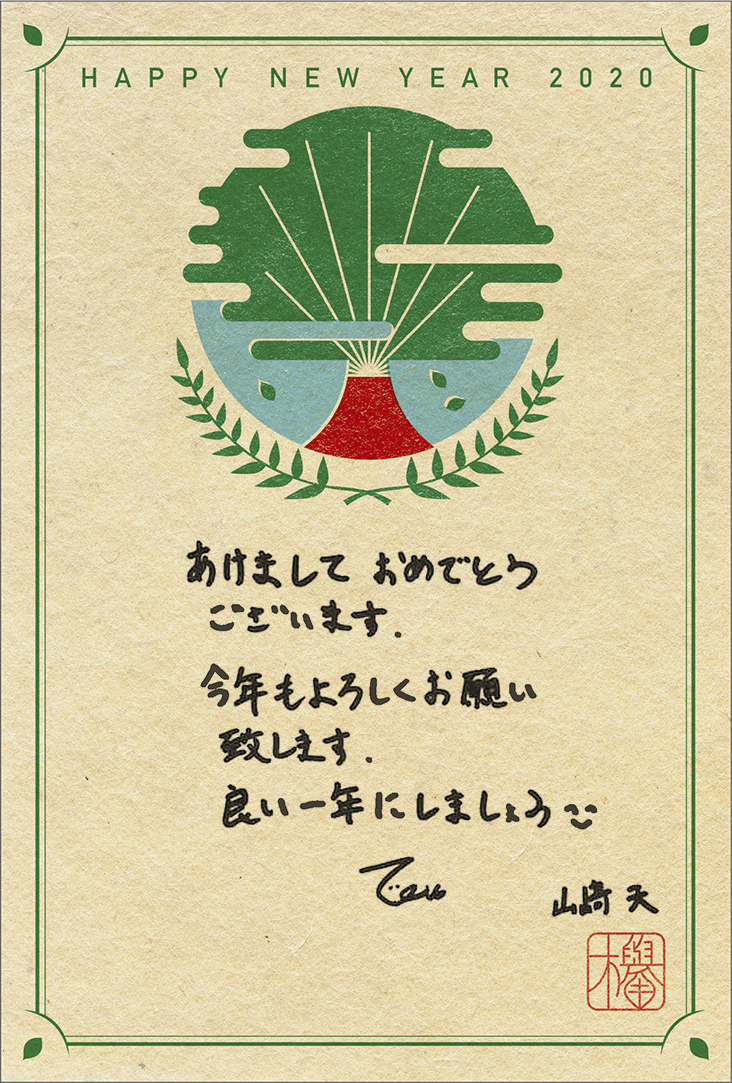 HAPPY NEW YEAR 2020
あけまして おめでとう
ございます.
今年もよろしくお願い
致します.
良い一年にしましょう
山﨑 天
欅